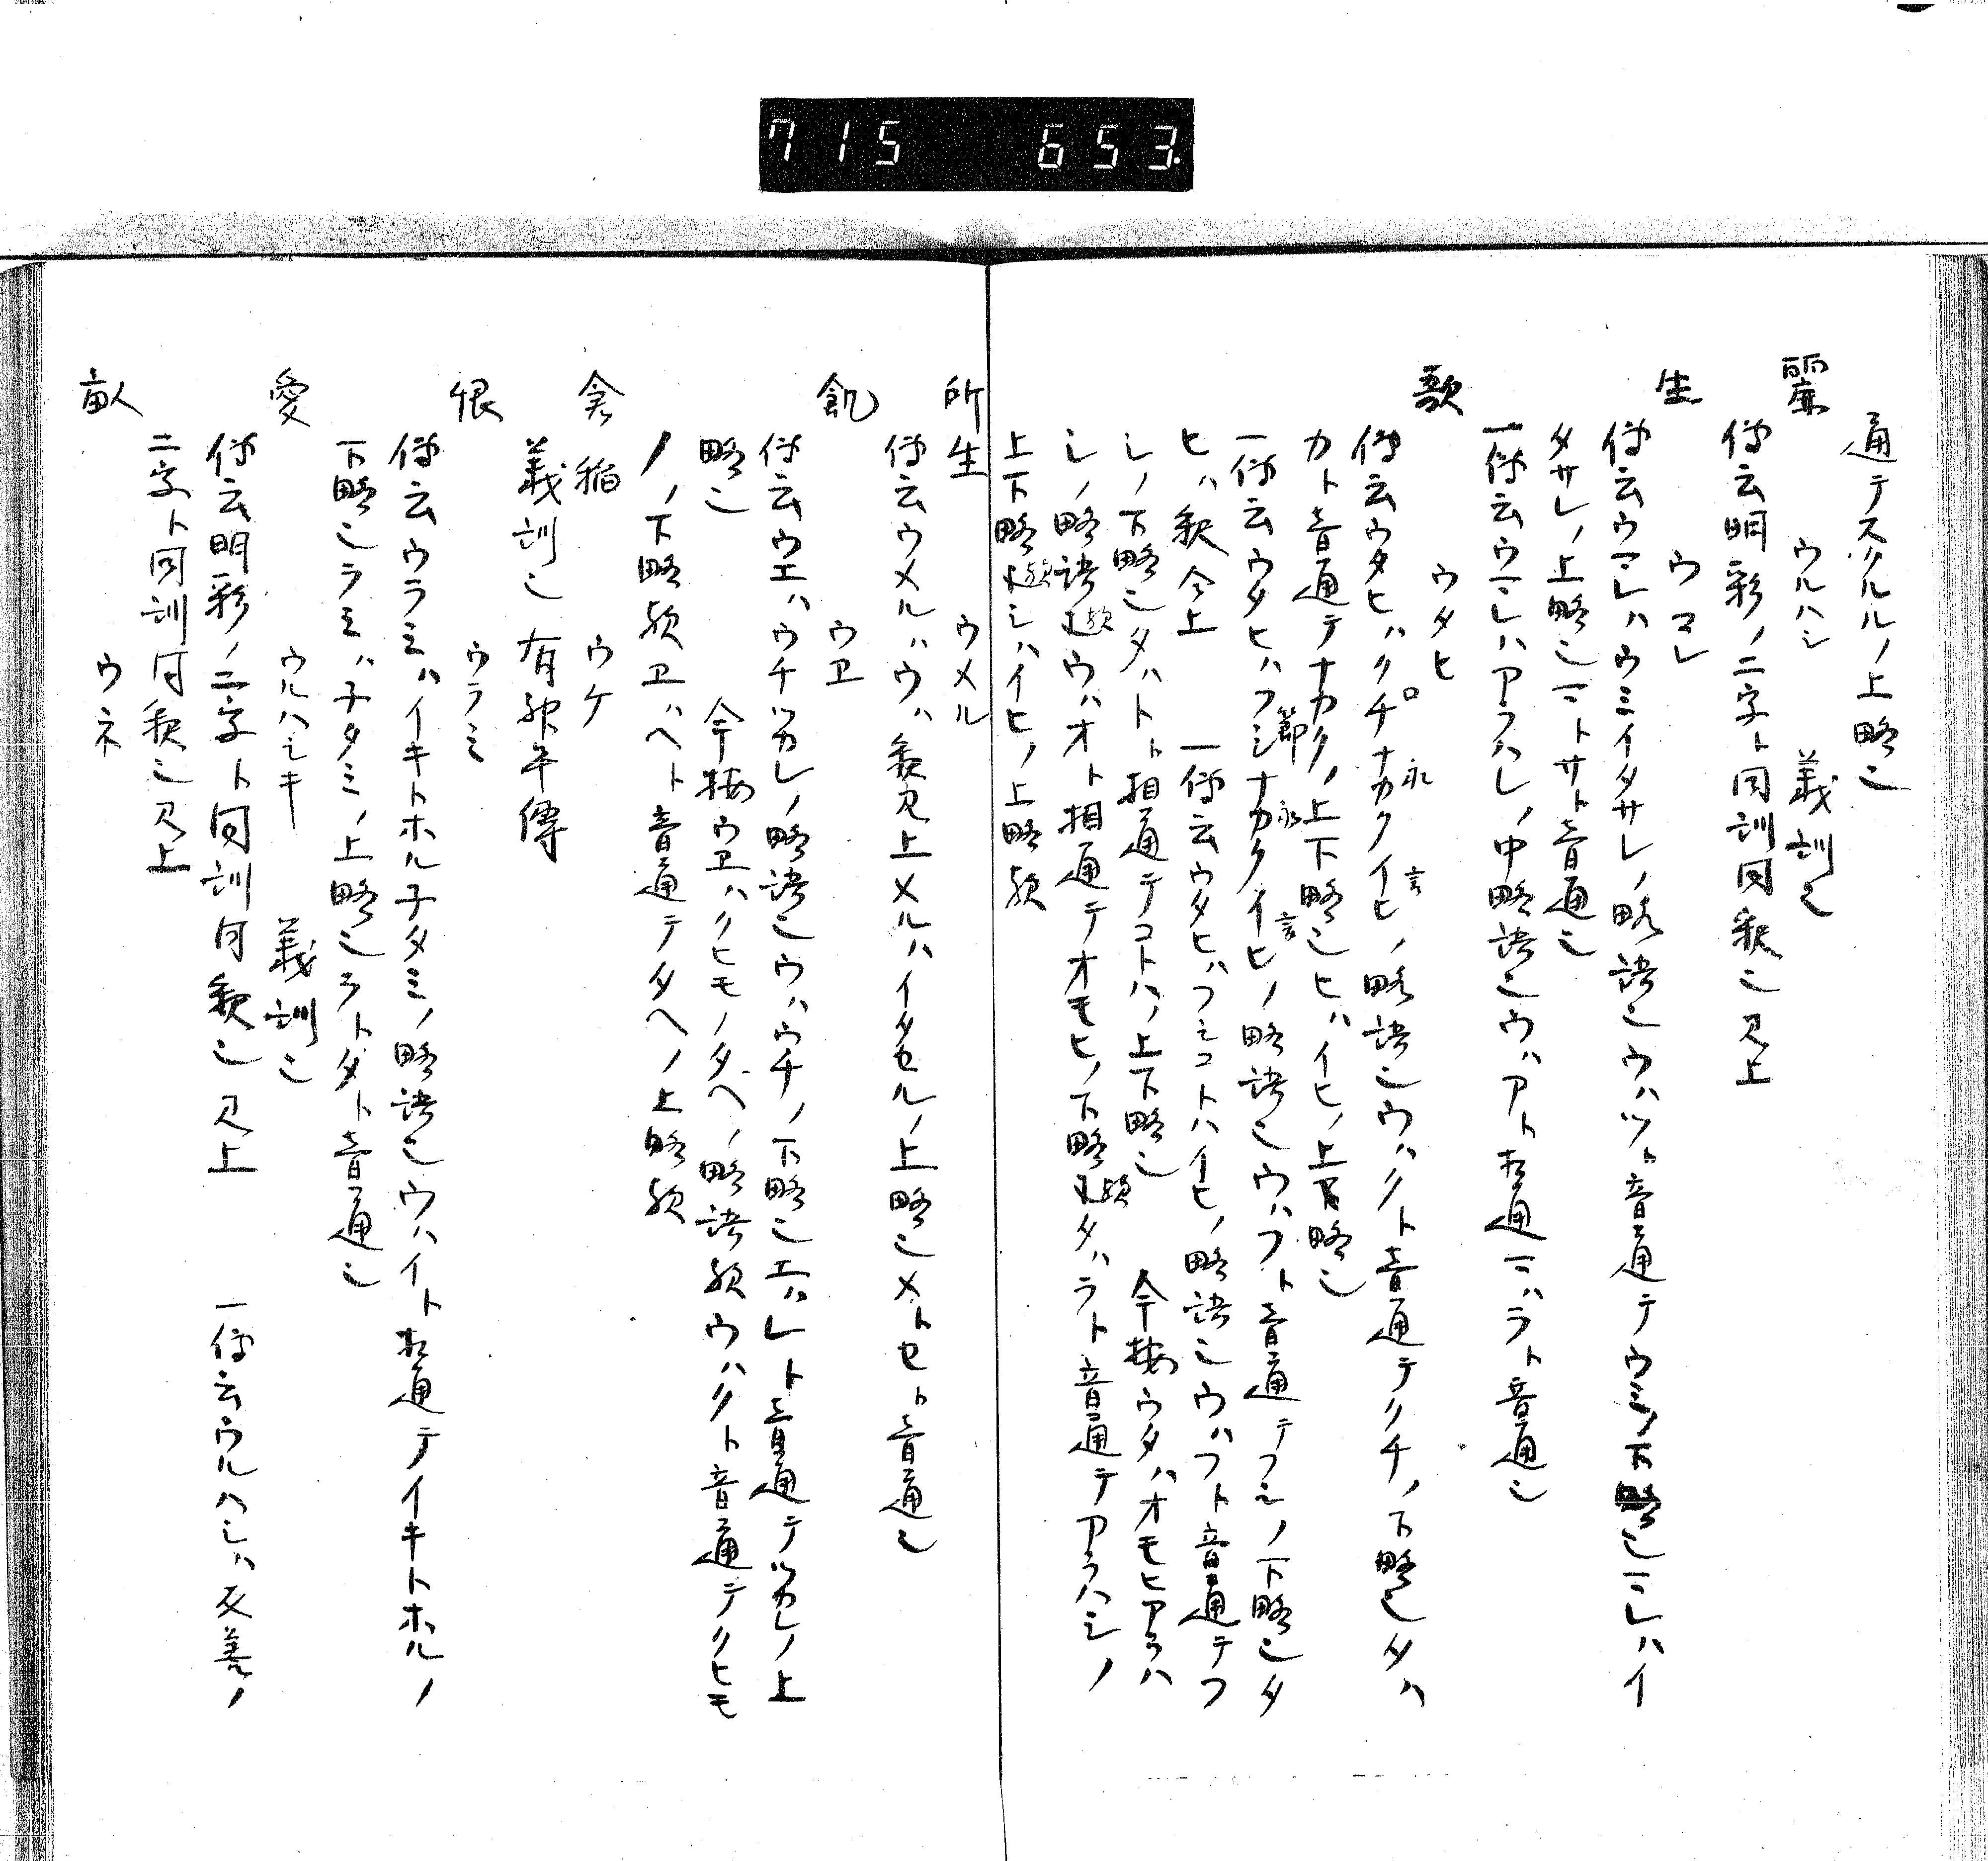 715 653
通テスクルルノ上略也
麗 ウルハシ 義訓也
傳云明彩ノ二字ト同訓同釈也見上
生 ウマレ
傳云ウマレハウミイタサレノ略語也ウハツト音通テウミノ下略也マレハイ
タサレノ上略也マトサト音通也
一傳云ウマレハアラハレノ中略語也ウハアト相通マハラト音通也
歌 ウタヒ
傳云ウタヒハクチ口ナカク永イヒ言ノ略語也ウハクト音通テクチノ下略也タハ
カト音通テナカクノ上下略也ヒハイヒノ上略也
一傳云ウタヒハフシ節ナカク永イヒ言ノ略語也ウハフト音通テフシノ下略也タ
ヒハ釈今上 一傳云ウタヒハフシコトハイヒノ略語也ウハフト音通テフ
シノ下略也タハトト相通テコトハノ上下略也 今按ウタハオモヒアラハ
シノ略語歟ウハオト相通テオモヒノ下略歟タハラト音通テアラハシノ
上下略歟シハイヒノ上略歟
所生 ウメル
傳云ウメルハウハ釈見上メルハイタセルノ上略也メトセト音通也
飢 ウヱ
傳云ウエハウチツカレノ略語也ウハウチノ下略也エハレト音通テツカレノ上
略也 今按ウヱハクヒモノタヘノ略語歟ウハクト音通テクヒモ
ノノ下略歟ヱハヘト音通テタヘノ上略歟
倉稲 ウケ
義訓也 有秘本傳
恨 ウラミ
傳云ウラミハイキトホル子タミノ略語也ウハイト相通テイキトホルノ
下略也ラミハ子タミノ上略也ラトタト音通也
愛 ウルハシキ 義訓也
傳云明彩ノ二字ト同訓同釈也見上 一傳云ウルハシハ友善ノ
二字ト同訓同釈也見上
畝 ウネ